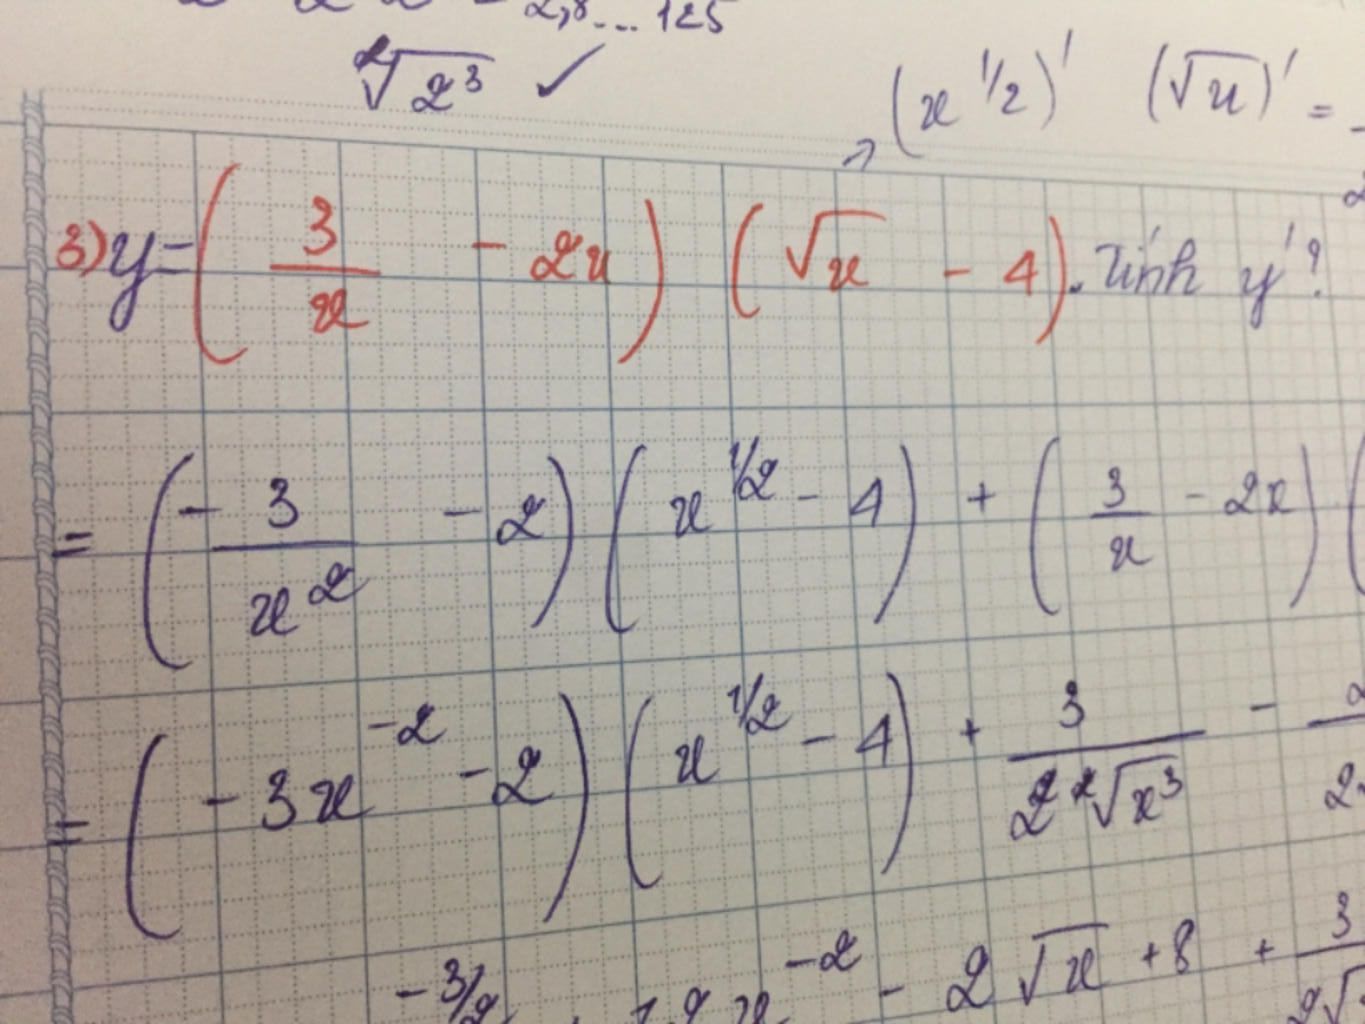 2,8...125
²√2³ ✓
(x^1/2)' (√x)' =
3) y = (3/x - 2x) (√x - 4). Tính y'?
= (-3/x² - 2) (x^1/2 - 4) + (3/x - 2x) (
= (-3x^-2 - 2) (x^1/2 - 4) + 3/(2 ²√x³) -
-3/2 x^-2 - 2√x + 8 + 3